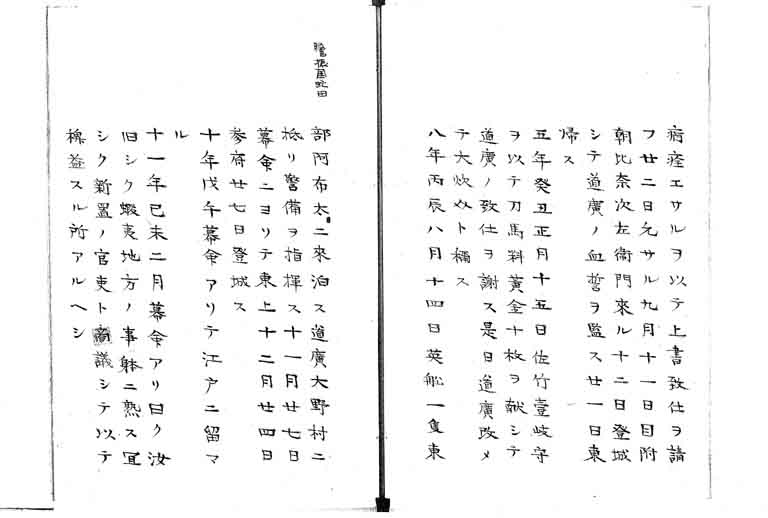 病痊エサルヲ以テ上書致仕ヲ請
フ廿二日允サル九月十一日目附
朝比奈次左衛門來ル十二日登城
シテ道廣ノ血誓ヲ監ス廿一日東
帰ス
五年癸丑正月十五日佐竹壹岐守
ヲ以テ刀馬料黄金十枚ヲ献シテ
道廣ノ致仕ヲ謝ス是日道廣改メ
テ大炊助ト稱ス
八年丙辰八月十四日英舩一隻東
膽振国虻田
部阿布太ニ來泊ス道廣大野村ニ
抵リ警備ヲ指揮ス十一月廿七日
幕命ニヨリテ東上十二月廿四日
参府廿七日登城ス
十年戊午幕命アリテ江戸ニ留マ
ル
十一年己未二月幕命アリ曰ク汝
旧シク蝦夷地方ノ事躰ニ熟ス宜
シク新置ノ官吏ト商議シテ以テ
裨益スル所アルヘシ